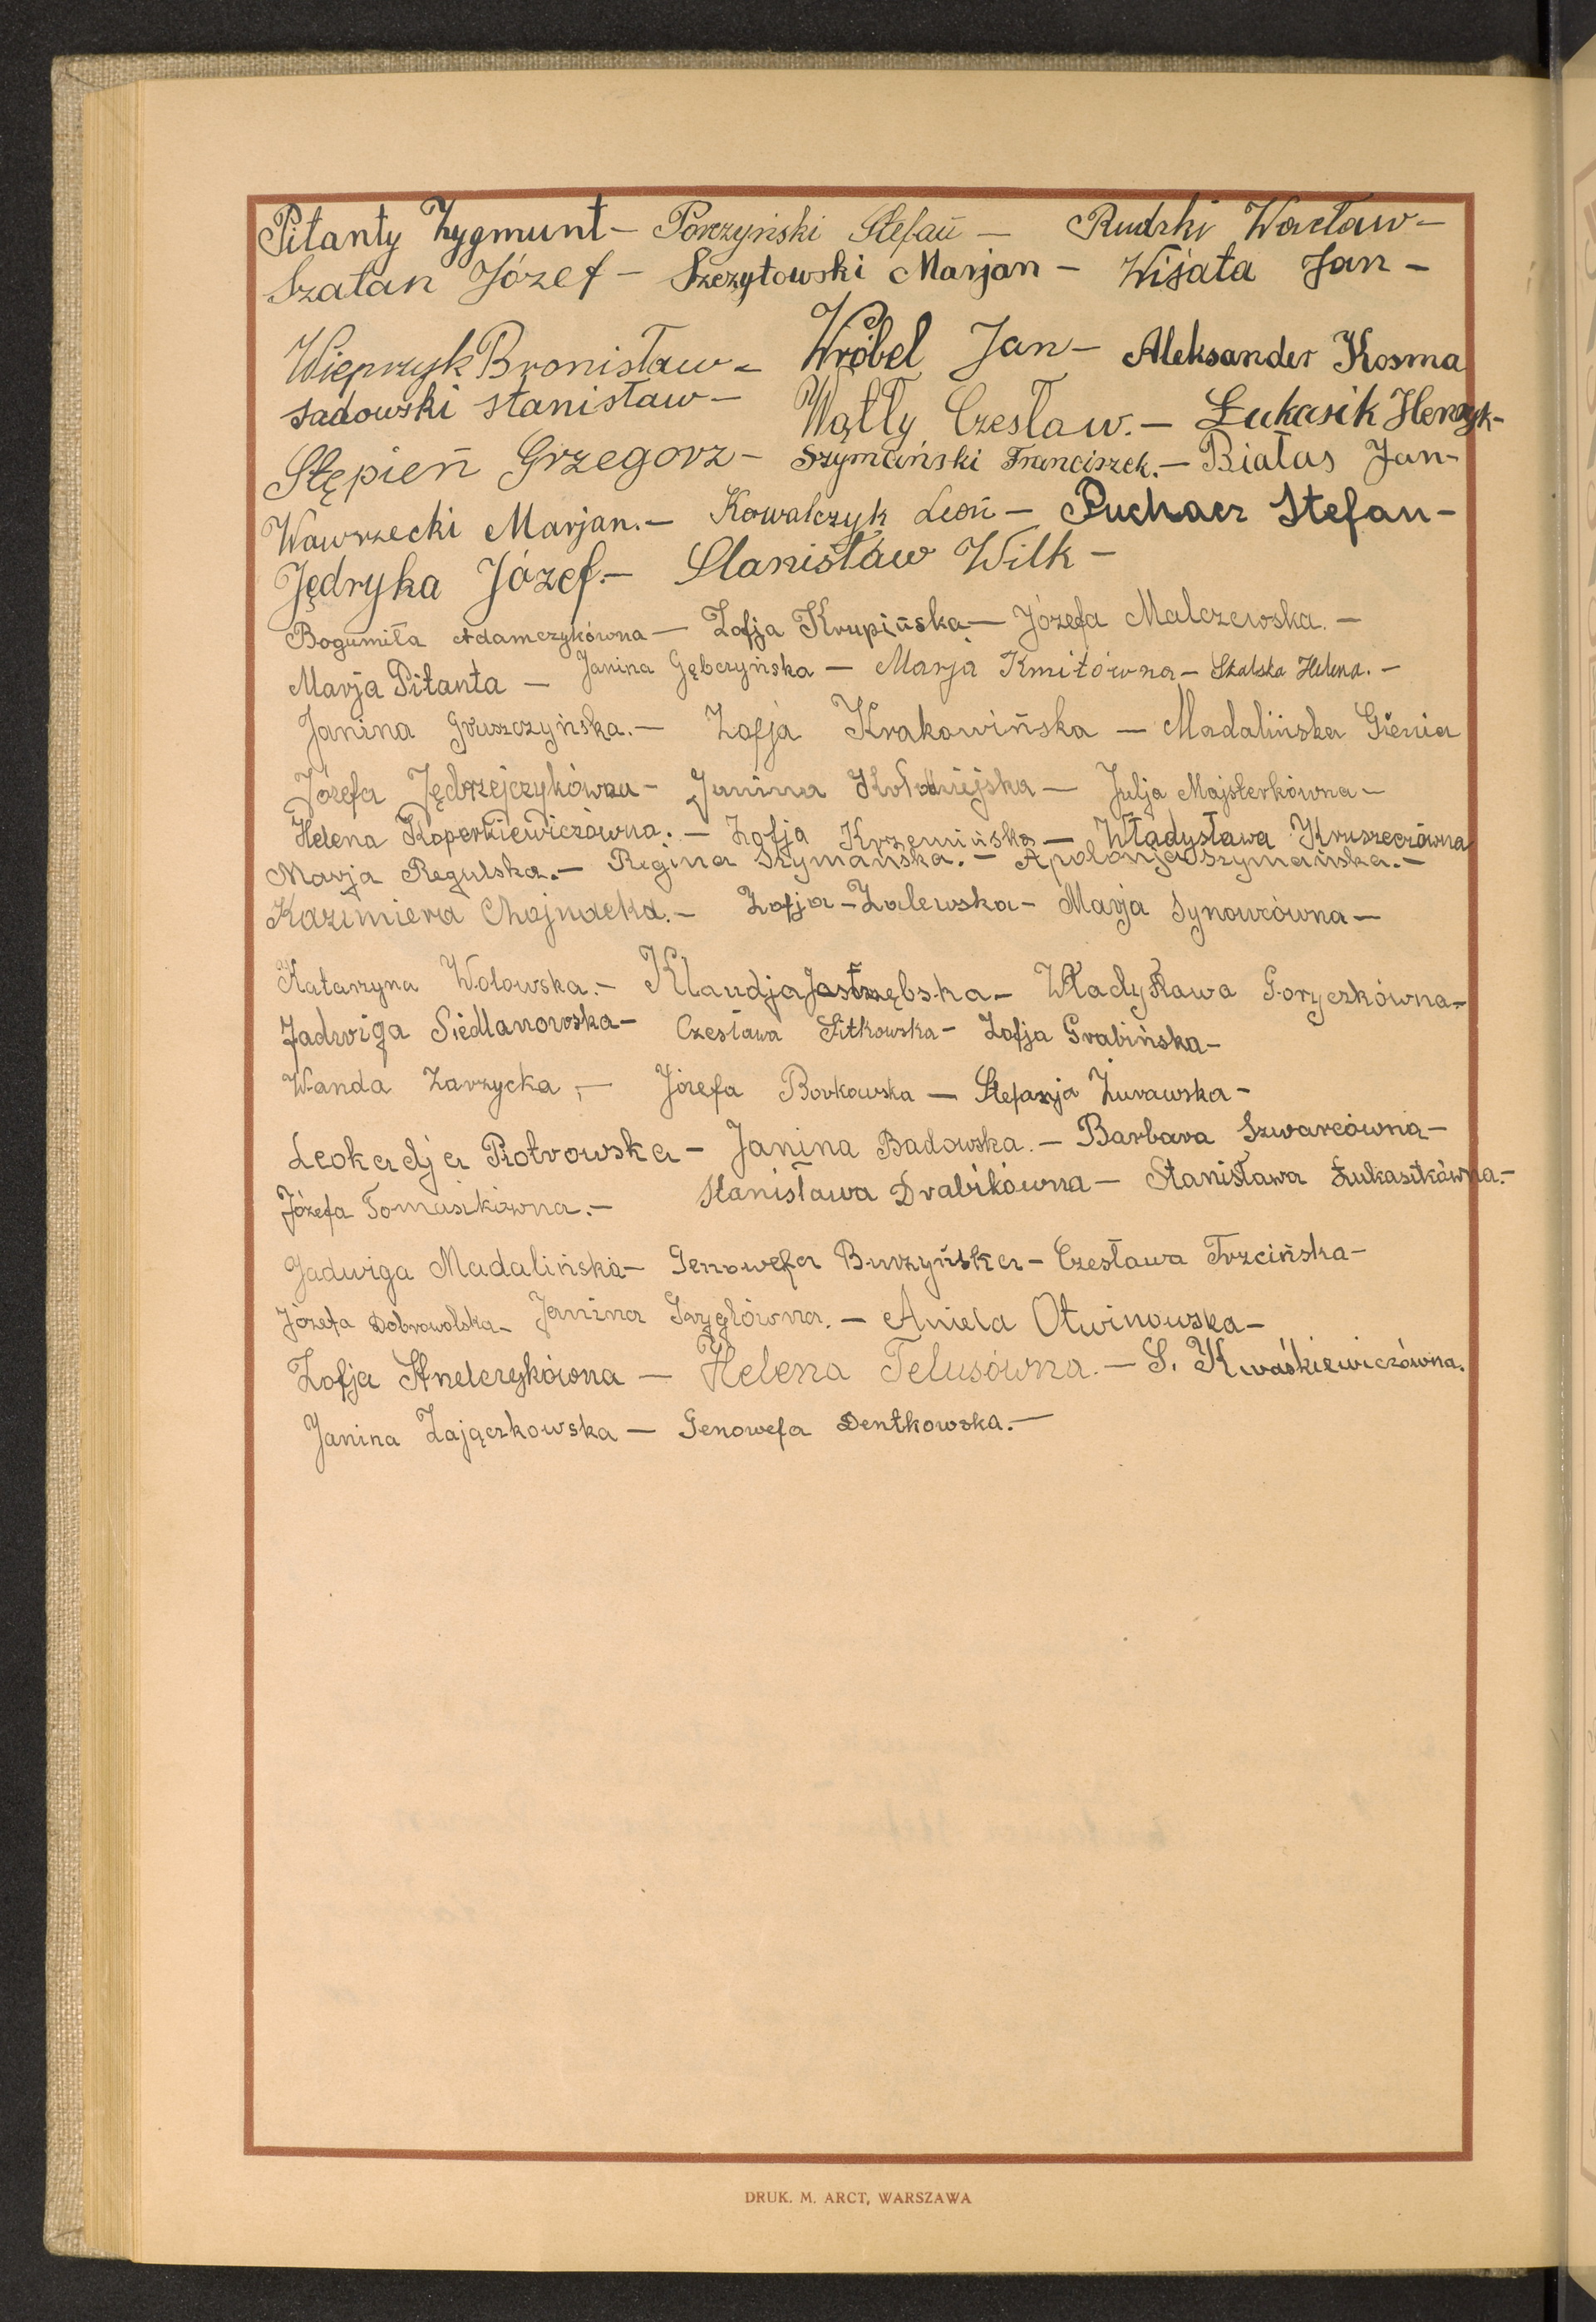 Pitanty Zygmunt – Porczyński Stefan – Rudzki Wacław –
Szatan Józef – Szczytowski Marjan – Wijata Jan –
Wieprzyk Bronisław – Wróbel Jan – Aleksander Kosma
Sadowski Stanisław – Wątły Czesław. – Łukasik Henryk –
Stępień Grzegorz – Szymański Franciszek. – Białas Jan –
Wawrzecki Marjan. – Kowalczyk Leon – Puchacz Stefan –
Jędryka Józef. – Stanisław Wilk –
Bogumiła Adamczykówna – Zofja Krupińska – Józefa Malczewska. –
Marja Pitanta – Janina Gębczyńska – Marja Kmitówna – Skalska Helena. –
Janina Gruszczyńska. – Zofja Krakowińska – Madalińska Gienia
Józefa Jędrzejczykówna – Janina Kołodziejska – Julja Majsterkówna –
Helena Koperkiewiczówna. – Zofja Krzemińska – Władysława Kruszecówna
Marja Regulska. – Regina Szymańska. – Apolonja Szymańska. –
Kazimiera Chojnacka. – Zofja – Zalewska – Marja Synowcówna –
Katarzyna Wolowska. – Klaudja Jastrzębska – Władysława Goryczkówna –
Jadwiga Siedlanowska – Czesława Sitkowska – Zofja Grabińska –
Wanda Zarzycka, – Józefa Borkowska – Stefanja Żurawska –
Leokadja Piotrowska – Janina Badowska. – Barbara Szwarcówna –
Józefa Tomasikówna. – Stanisława Drabikówna – Stanisława Łukasikówna. –
Jadwiga Madalińska – Genowefa Burzyńska – Czesława Trzcińska –
Józefa Dobrowolska – Janina Grygłówna. – Aniela Otwinowska –
Zofja Anelczykówna – Helena Telusówna. – S. Kwaśkiewiczówna.
Janina Zajączkowska – Genowefa Dentkowska. –
DRUK. M. ARCT, WARSZAWA